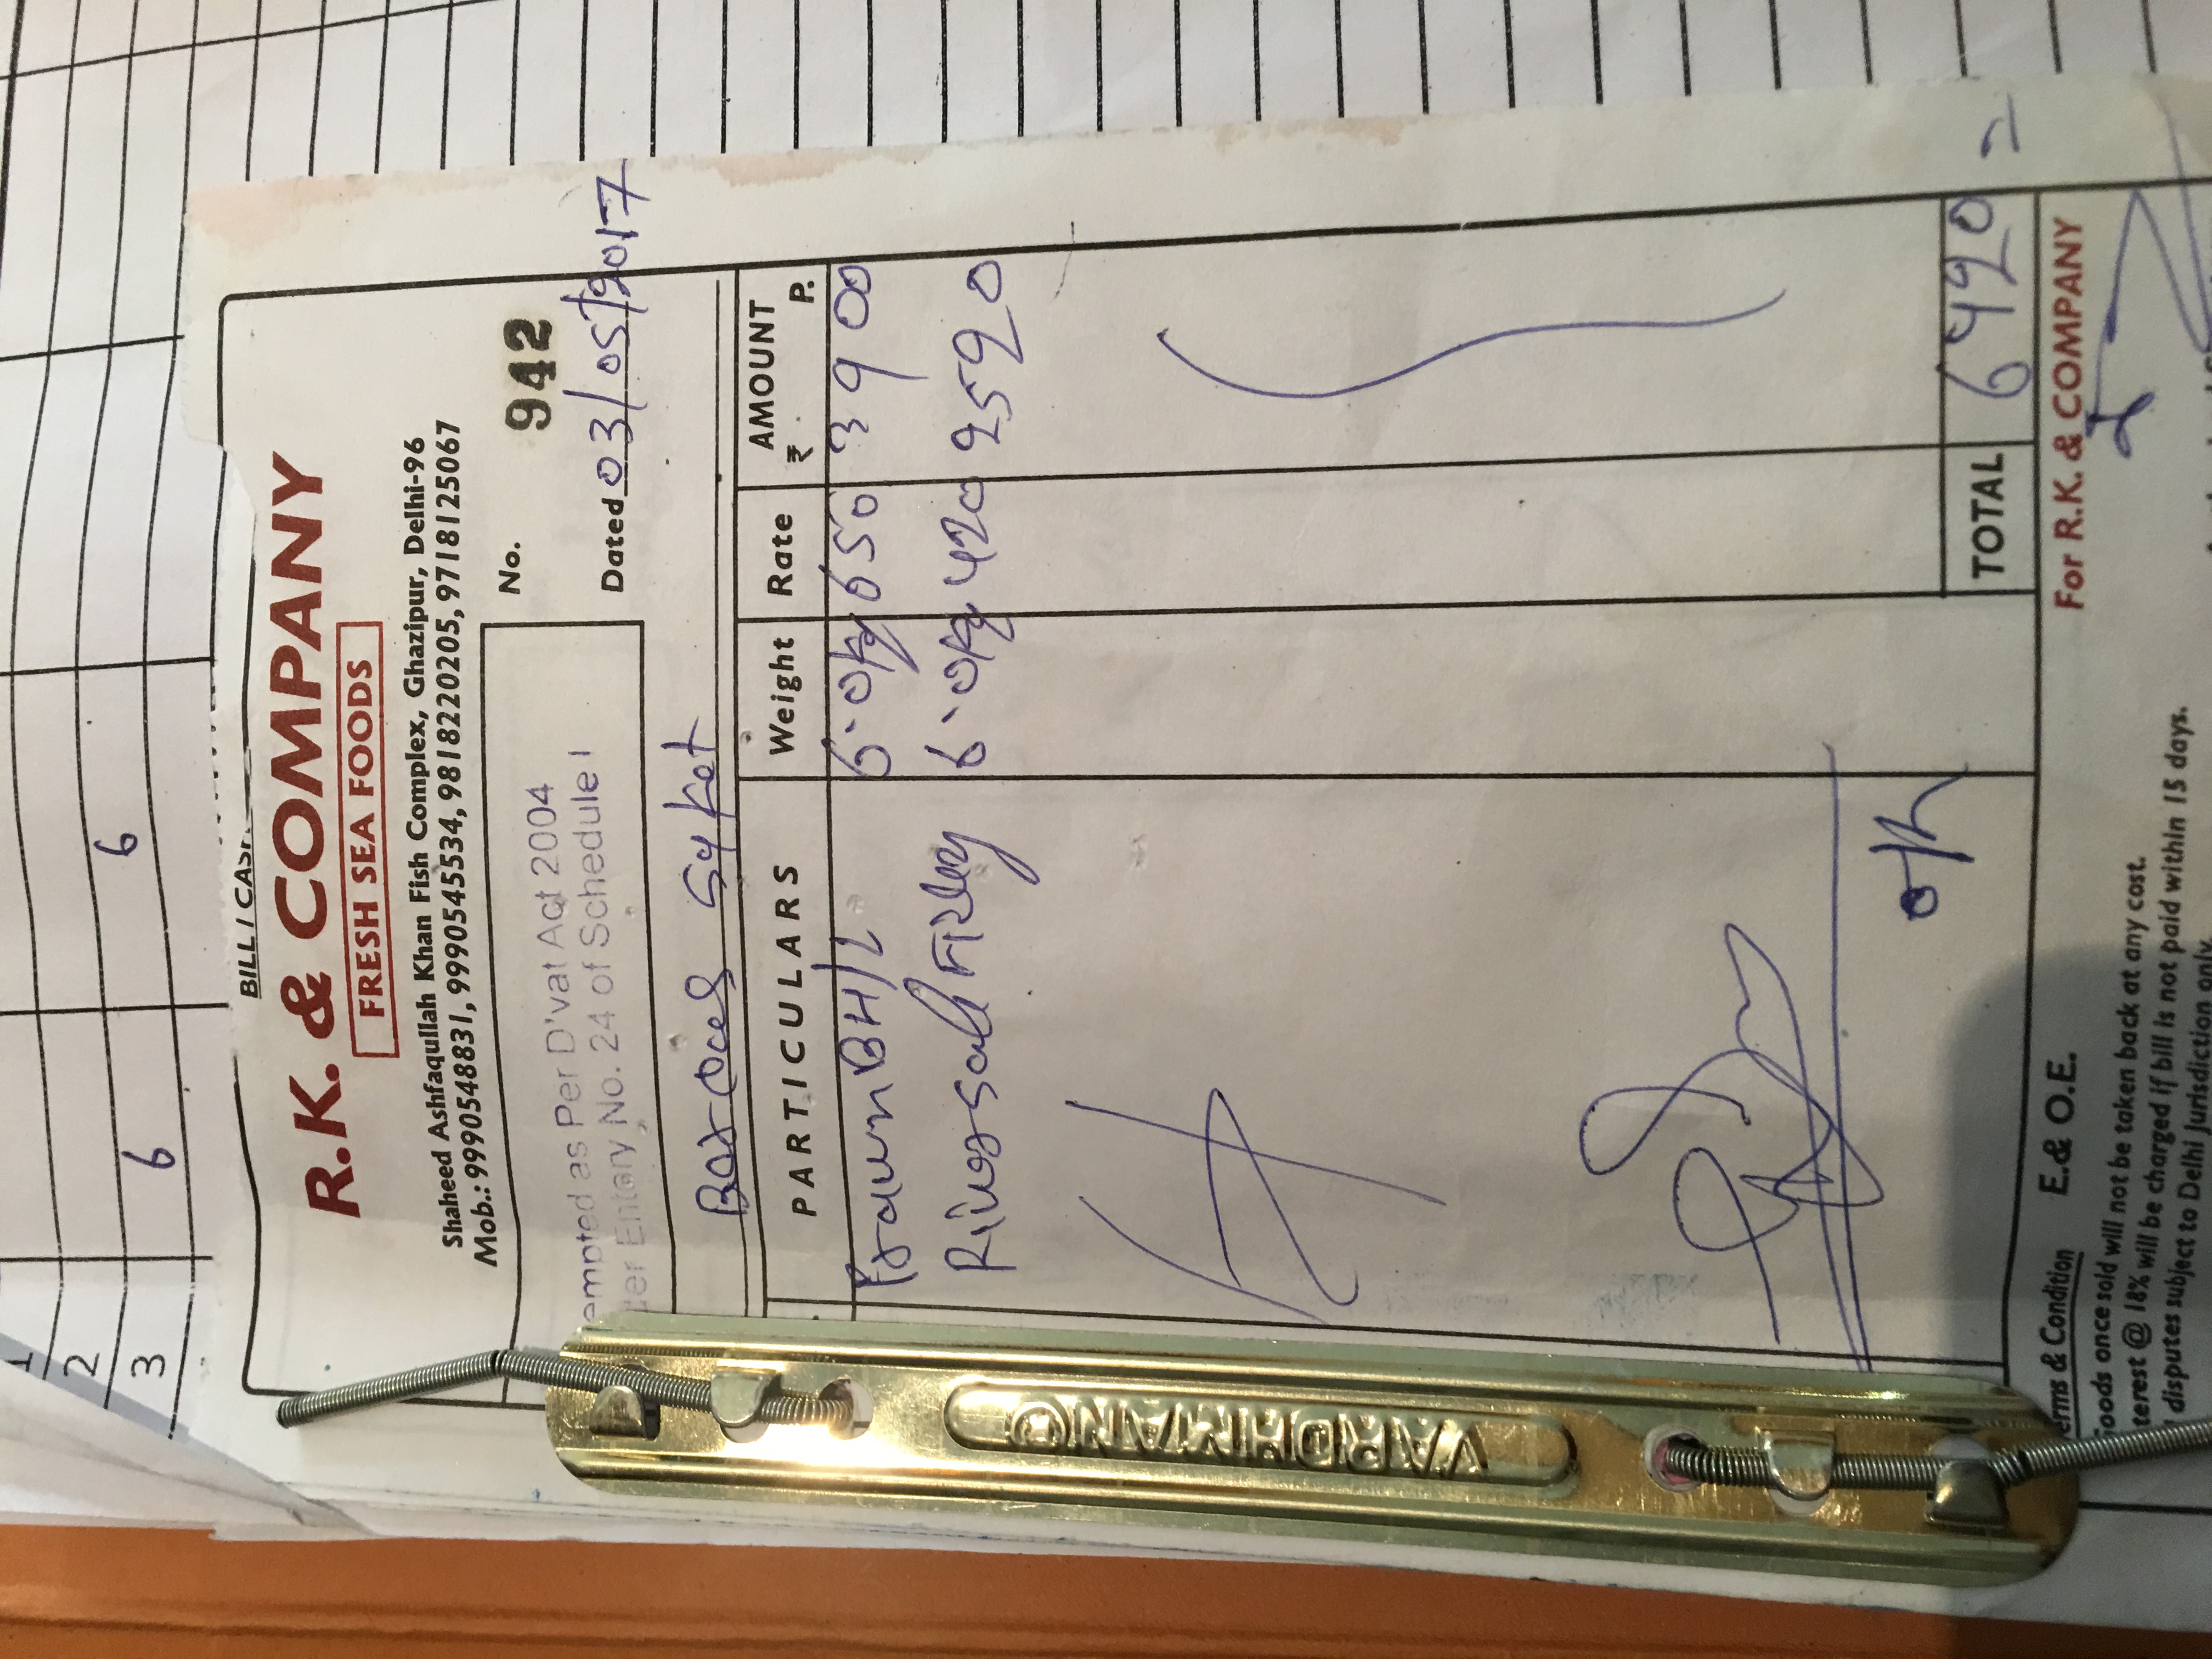 2
3 6 6
BILL / CAS
R.K. & COMPANY
FRESH SEA FOODS
Shaheed Ashfaqullah Khan Fish Complex, Ghazipur, Delhi-96
Mob.: 9990548831, 9990545534, 9818220205, 9718125067
empted as Per D'vat Act 2004
der Entery No. 24 of Schedule I
No. 942
Dated 03/05/2017
PARTICULARS Weight Rate AMOUNT
₹ P.
Prawn BH/L 6.0kg 650 3900
River sole 6.0kg 420 2520
VARDHMAN
o/k
TOTAL 6420 =
erms & Condition E.& O.E.
For R.K. & COMPANY
Goods once sold will not be taken back at any cost.
terest @ 18% will be charged if bill is not paid within 15 days.
disputes subject to Delhi Jurisdiction only.